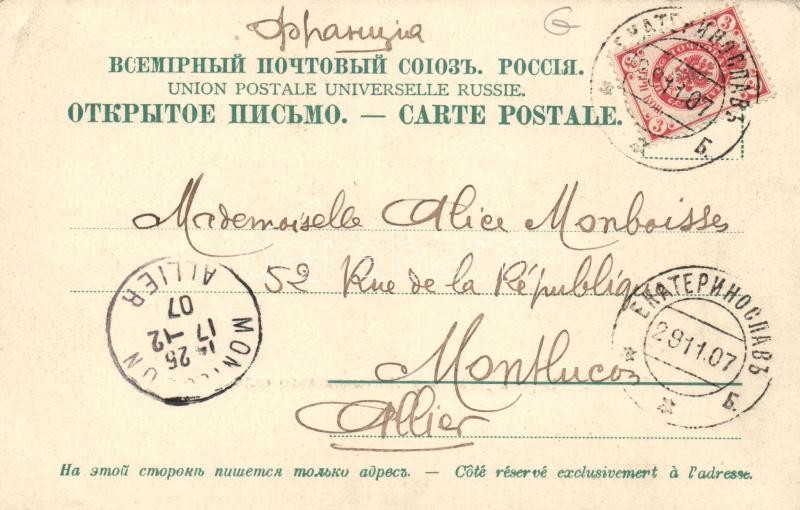 Франція
ВСЕМІРНЫЙ ПОЧТОВЫЙ СОЮЗЪ. РОССІЯ.
UNION POSTALE UNIVERSELLE RUSSIE.
ОТКРЫТОЕ ПИСЬМО. — CARTE POSTALE.
3 3
3 3
ЕКАТЕРИНОСЛАВЪ
11.07
Б.
Mademoiselle Alice Monboisse
52 Rue de la République
Montlucon
Allier
ALLIER
07
17-12
25
ЕКАТЕРИНОСЛАВЪ
29.11.07
Б.
На этой сторонѣ пишется только адресъ. — Côté réservé exclusivement à l'adresse.